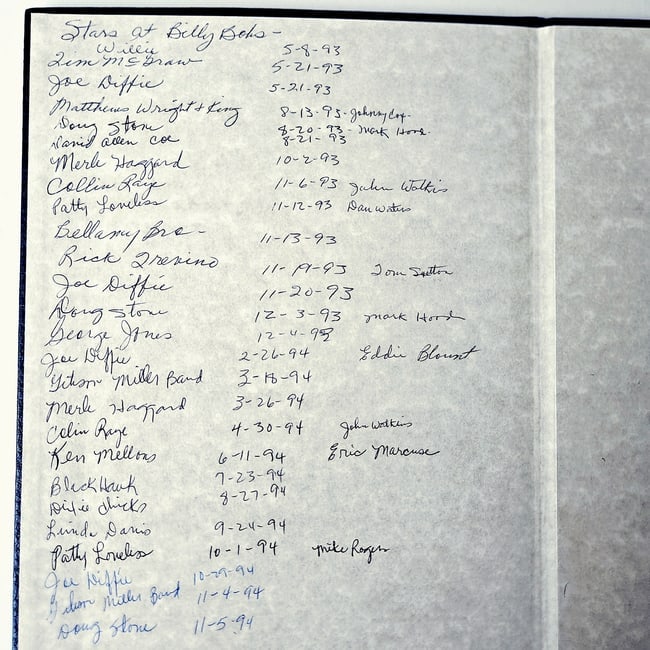 Stars at Billy Bobs -
Willie 5-8-93
Tim McGraw 5-21-93
Joe Diffie 5-21-93
Matthews Wright & King 8-13-93 - Johnny Cox.
Doug Stone 8-20-93 - Mark Hood.
David Allen Coe 8-21-93
Merle Haggard 10-2-93
Collin Raye 11-6-93 John Watkis
Patty Loveless 11-12-93 Dan Waters
Bellamy Bro - 11-13-93
Rick Trevino 11-19-93 Tom Sutton
Joe Diffie 11-20-93
Doug Stone 12-3-93 Mark Hood
George Jones 12-4-93
Joe Diffie 2-26-94 Eddie Blount
Gibson Miller Band 3-18-94
Merle Haggard 3-26-94
Colin Raye 4-30-94 John Watkins
Ken Mellons 6-11-94 Eric Marcuse
BlackHawk 7-23-94
Dixie Chicks 8-27-94
Linda Davis 9-24-94
Patty Loveless 10-1-94 Mike Rogers
Joe Diffie 10-29-94
Gibson Miller Band 11-4-94
Doug Stone 11-5-94